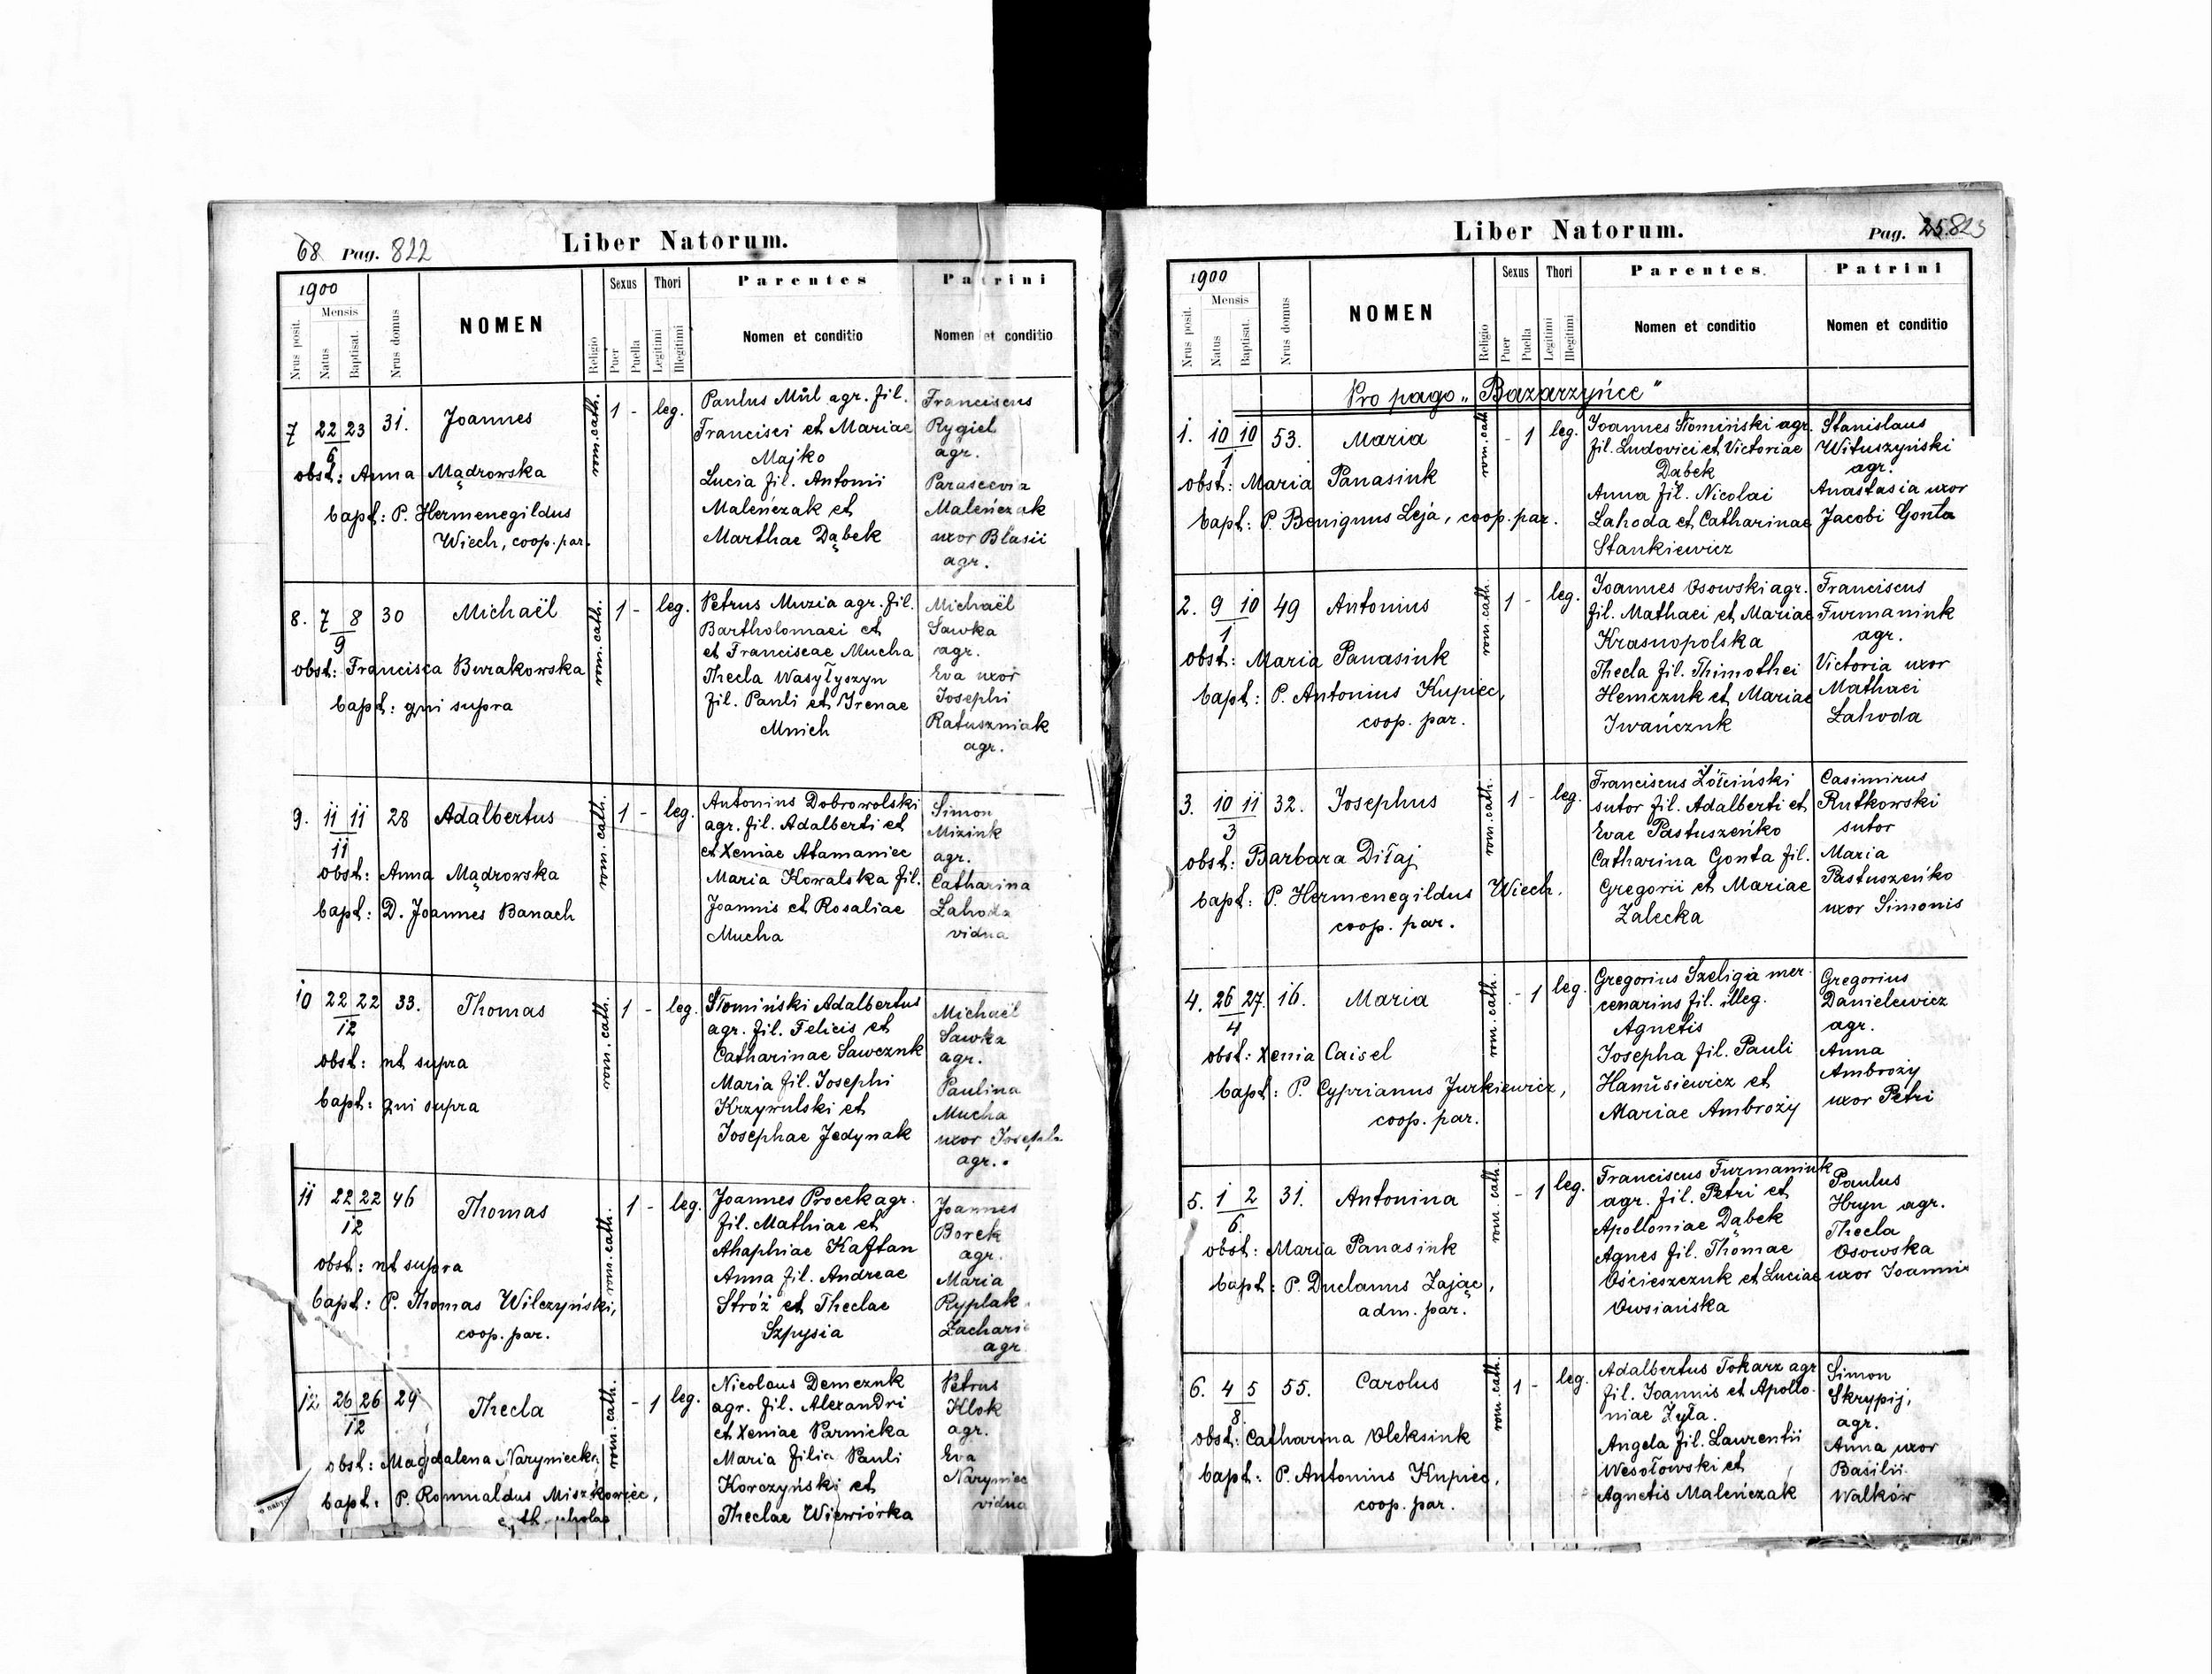 68 Pag. 822
Liber Natorum.
1900
Mensis
Nrus posit.
Natus
Baptisat.
Nrus domus
NOMEN
Religio
Sexus
Puer
Puella
Thori
Legitimi
Illegitimi
Parentes
Nomen et conditio
Patrini
Nomen et conditio
7 22 23 31. Joannes rom. cath. 1 - leg.
6
obst: Anna Mądrowska
bapt: P. Hermenegildus
Wiech, coop. par.
Paulus Mül agr. fil.
Francisci et Mariae
Majko
Lucia fil. Antonii
Maleńczak et
Marthae Dąbek
Franciscus
Rygiel
agr.
Parascevia
Maleńczak
uxor Blasii
agr.
8. 7 8 30 Michaël rom. cath. 1 - leg.
9
obst: Francisca Burakowska
bapt: qui supra
Petrus Muzia agr. fil.
Bartholomaei et
et Franciscae Mucha
Thecla Wasyłyszyn
fil. Pauli et Irenae
Mnich
Michaël
Sawka
agr.
Eva uxor
Josephi
Ratuszniak
agr.
9. 11 11 28 Adalbertus rom. cath. 1 - leg.
11
obst: Anna Mądrowska
bapt: D. Joannes Banach
Antonius Dobrowolski
agr. fil. Adalberti et
et Xeniae Atamaniec
Maria Kowalska fil.
Joannis et Rosaliae
Mucha
Simon
Miziuk
agr.
Catharina
Łahoda
vidua
10 22 22 33. Thomas rom. cath. 1 - leg.
12
obst: ut supra
bapt: qui supra
Słomiński Adalbertus
agr. fil. Felicis et
Catharinae Sawczuk
Maria fil. Josephi
Krzywulski et
Josephae Jedynak
Michaël
Sawka
agr.
Paulina
Mucha
uxor Josephi
agr.
11 22 22 46 Thomas rom. cath. 1 - leg.
12
obst: ut supra
bapt: P. Thomas Wilczyński,
coop. par.
Joannes Procek agr.
fil. Mathiae et
Ahaphiae Kaftan
Anna fil. Andreae
Stróż et Theclae
Szpysia
Joannes
Borek
agr.
Maria
Ryplak
Zachari
agr
12 26 26 29 Thecla rom. cath. - 1 leg.
12
obst: Magdalena Naryniecka
bapt: P. Romualdus Miszkowiec,
Nicolaus Demczuk
agr. fil. Alexandri
et Xeniae Parnicka
Maria filia Pauli
Korczyński et
Theclae Wiewiórka
Petrus
Klok
agr.
Eva
Naryniec
vidua
Liber Natorum.
Pag. 25. 823
1900
Mensis
Nrus posit.
Natus
Baptisat.
Nrus domus
NOMEN
Religio
Sexus
Puer
Puella
Thori
Legitimi
Illegitimi
Parentes.
Nomen et conditio
Patrini
Nomen et conditio
Pro pago „Bazarzyńce"
1. 10 10 53. Maria rom. cath. - 1 leg.
1
obst: Maria Panasiuk
bapt: P. Benignus Leja, coop. par.
Joannes Słomiński agr.
fil. Ludovici et Victoriae
Dąbek
Anna fil. Nicolai
Łahoda et Catharinae
Stankiewicz
Stanislaus
Wituszyński
agr.
Anastasia uxor
Jacobi Gonta
2. 9 10 49 Antonius rom. cath. 1 - leg.
1
obst: Maria Panasiuk
bapt: P. Antonius Kupiec,
coop. par.
Joannes Osowski agr.
fil. Mathaei et Mariae
Krasnopolska
Thecla fil. Thimothei
Hemczuk et Mariae
Iwańczuk
Franciscus
Furmaniuk
agr.
Victoria uxor
Mathaei
Łahoda
3. 10 11 32. Josephus rom. cath. 1 - leg.
3
obst: Barbara Diłaj
bapt: P. Hermenegildus Wiech.
coop. par.
Franciscus Żółciński
sutor fil. Adalberti et
Evae Pastuszeńko
Catharina Gonta fil.
Gregorii et Mariae
Zalecka
Casimirus
Rutkowski
sutor
Maria
Pastuszeńko
uxor Simonis
4. 26 27. 16. Maria rom. cath. - 1 leg.
4
obst: Xenia Caisel
bapt: P. Cyprianus Jurkiewicz,
coop. par.
Gregorius Szeliga mer
cenarius fil. illeg.
Agnetis
Josepha fil. Pauli
Hanusiewicz et
Mariae Ambroży
Gregorius
Danielewicz
agr.
Anna
Ambroży
uxor Petri
5. 1 2 31. Antonina rom. cath. - 1 leg.
6.
obst: Maria Panasiuk
bapt: P. Duclanus Zając,
adm. par.
Franciscus Furmaniuk
agr. fil. Petri et
Apolloniae Dąbek
Agnes fil. Thomae
Ościeszczuk et Luciae
Owsiańska
Paulus
Hryn agr.
Thecla
Osowska
uxor Joannis
6. 4 5 55. Carolus rom. cath. 1 - leg.
8.
obst: Catharina Oleksiuk
bapt: P. Antonius Kupiec,
coop. par.
Adalbertus Tokarz agr
fil. Joannis et Apollo
niae Zyła.
Angela fil. Laurentii
Wesołowski et
Agnetis Maleńczak
Simon
Skrypij,
agr.
Anna uxor
Basilii
Walków